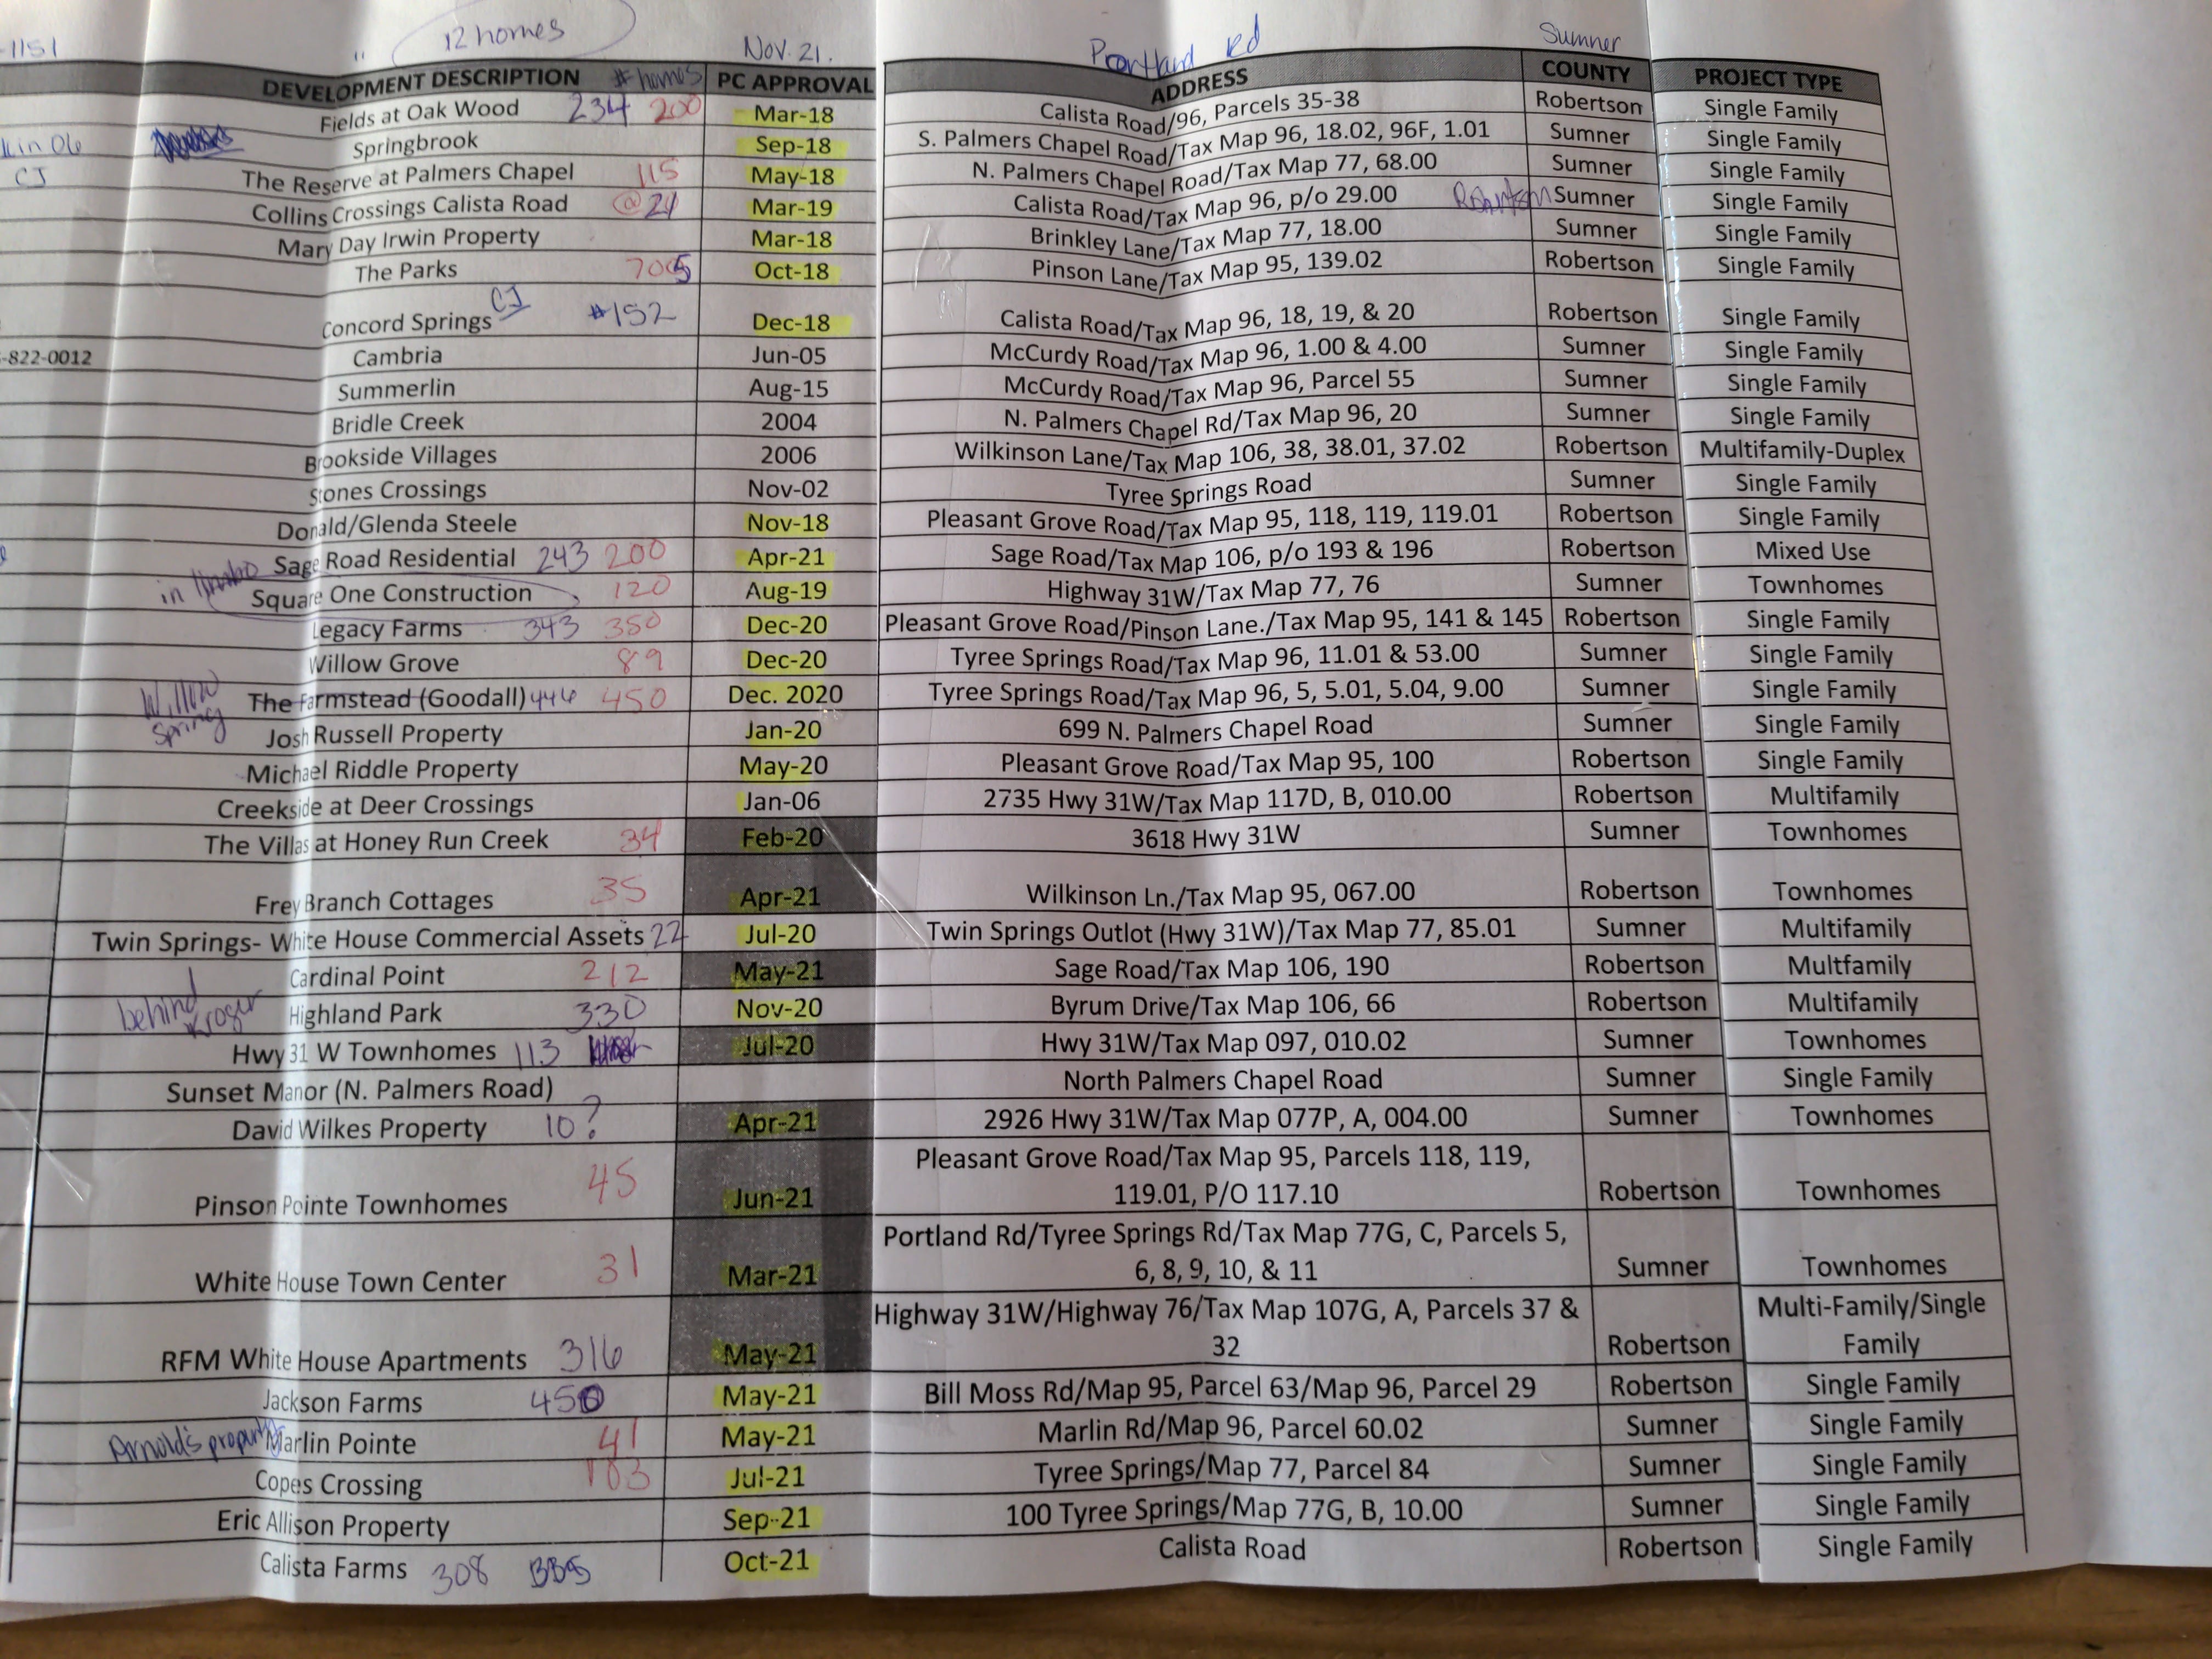 -1151 " 12 homes Nov. 21. Portland Rd Sumner
DEVELOPMENT DESCRIPTION # homes PC APPROVAL ADDRESS COUNTY PROJECT TYPE
Fields at Oak Wood 234 200 Mar-18 Calista Road/96, Parcels 35-38 Robertson Single Family
in 06 Springbrook Sep-18 S. Palmers Chapel Road/Tax Map 96, 18.02, 96F, 1.01 Sumner Single Family
CJ The Reserve at Palmers Chapel 115 May-18 N. Palmers Chapel Road/Tax Map 77, 68.00 Sumner Single Family
Collins Crossings Calista Road @ 24 Mar-19 Calista Road/Tax Map 96, p/o 29.00 Robertson Sumner Single Family
Mary Day Irwin Property Mar-18 Brinkley Lane/Tax Map 77, 18.00 Sumner Single Family
The Parks 705 Oct-18 Pinson Lane/Tax Map 95, 139.02 Robertson Single Family
Concord Springs CJ #152 Dec-18 Calista Road/Tax Map 96, 18, 19, & 20 Robertson Single Family
-822-0012 Cambria Jun-05 McCurdy Road/Tax Map 96, 1.00 & 4.00 Sumner Single Family
Summerlin Aug-15 McCurdy Road/Tax Map 96, Parcel 55 Sumner Single Family
Bridle Creek 2004 N. Palmers Chapel Rd/Tax Map 96, 20 Sumner Single Family
Brookside Villages 2006 Wilkinson Lane/Tax Map 106, 38, 38.01, 37.02 Robertson Multifamily-Duplex
Stones Crossings Nov-02 Tyree Springs Road Sumner Single Family
Donald/Glenda Steele Nov-18 Pleasant Grove Road/Tax Map 95, 118, 119, 119.01 Robertson Single Family
Sage Road Residential 243 200 Apr-21 Sage Road/Tax Map 106, p/o 193 & 196 Robertson Mixed Use
in Square One Construction 120 Aug-19 Highway 31W/Tax Map 77, 76 Sumner Townhomes
Legacy Farms 343 350 Dec-20 Pleasant Grove Road/Pinson Lane./Tax Map 95, 141 & 145 Robertson Single Family
Willow Grove 89 Dec-20 Tyree Springs Road/Tax Map 96, 11.01 & 53.00 Sumner Single Family
Willow Spring The Farmstead (Goodall) 446 450 Dec. 2020 Tyree Springs Road/Tax Map 96, 5, 5.01, 5.04, 9.00 Sumner Single Family
Josh Russell Property Jan-20 699 N. Palmers Chapel Road Sumner Single Family
Michael Riddle Property May-20 Pleasant Grove Road/Tax Map 95, 100 Robertson Single Family
Creekside at Deer Crossings Jan-06 2735 Hwy 31W/Tax Map 117D, B, 010.00 Robertson Multifamily
The Villas at Honey Run Creek 34 Feb-20 3618 Hwy 31W Sumner Townhomes
Frey Branch Cottages 35 Apr-21 Wilkinson Ln./Tax Map 95, 067.00 Robertson Townhomes
Twin Springs- White House Commercial Assets 22 Jul-20 Twin Springs Outlot (Hwy 31W)/Tax Map 77, 85.01 Sumner Multifamily
Cardinal Point 212 May-21 Sage Road/Tax Map 106, 190 Robertson Multfamily
behind Kroger Highland Park 330 Nov-20 Byrum Drive/Tax Map 106, 66 Robertson Multifamily
Hwy 31 W Townhomes 113 Jul-20 Hwy 31W/Tax Map 097, 010.02 Sumner Townhomes
Sunset Manor (N. Palmers Road) North Palmers Chapel Road Sumner Single Family
David Wilkes Property 10? Apr-21 2926 Hwy 31W/Tax Map 077P, A, 004.00 Sumner Townhomes
Pleasant Grove Road/Tax Map 95, Parcels 118, 119,
Pinson Pointe Townhomes 45 Jun-21 119.01, P/O 117.10 Robertson Townhomes
Portland Rd/Tyree Springs Rd/Tax Map 77G, C, Parcels 5,
White House Town Center 31 Mar-21 6, 8, 9, 10, & 11 Sumner Townhomes
Highway 31W/Highway 76/Tax Map 107G, A, Parcels 37 & Multi-Family/Single
RFM White House Apartments 316 May-21 32 Robertson Family
Jackson Farms 450 May-21 Bill Moss Rd/Map 95, Parcel 63/Map 96, Parcel 29 Robertson Single Family
Arnold's property Marlin Pointe 41 May-21 Marlin Rd/Map 96, Parcel 60.02 Sumner Single Family
Copes Crossing 103 Jul-21 Tyree Springs/Map 77, Parcel 84 Sumner Single Family
Eric Allison Property Sep-21 100 Tyree Springs/Map 77G, B, 10.00 Sumner Single Family
Calista Farms 308 Oct-21 Calista Road Robertson Single Family